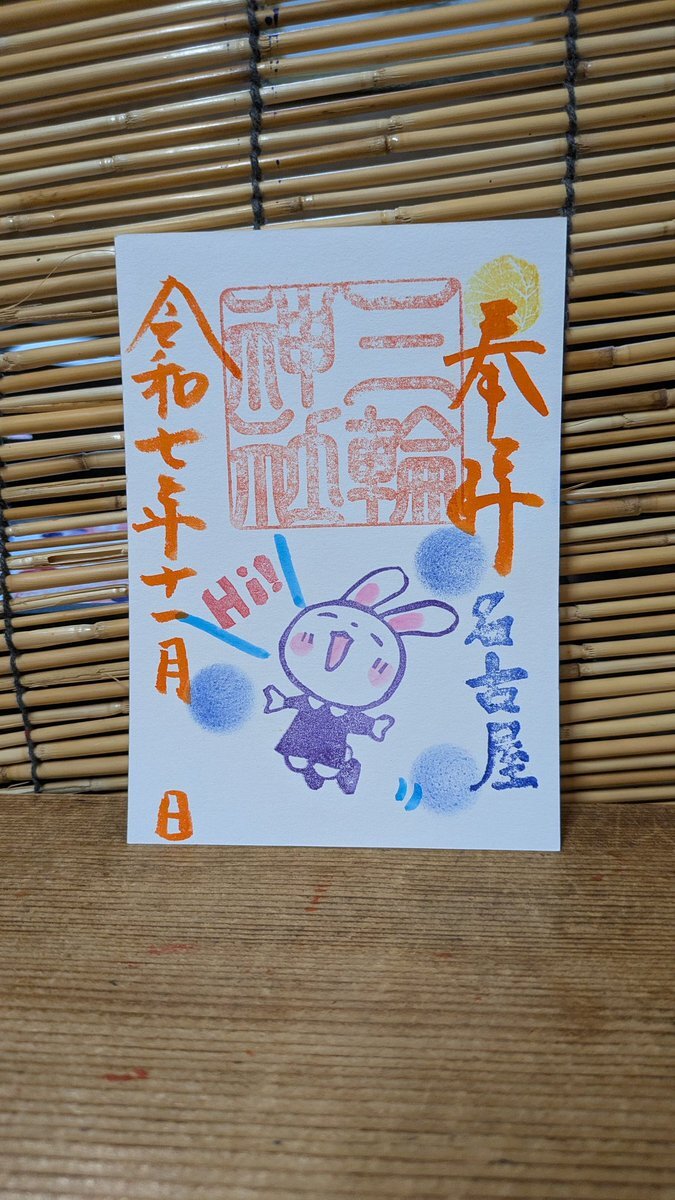 奉拝
名古屋
三輪
神社
Hi!
令和七年十一月 日